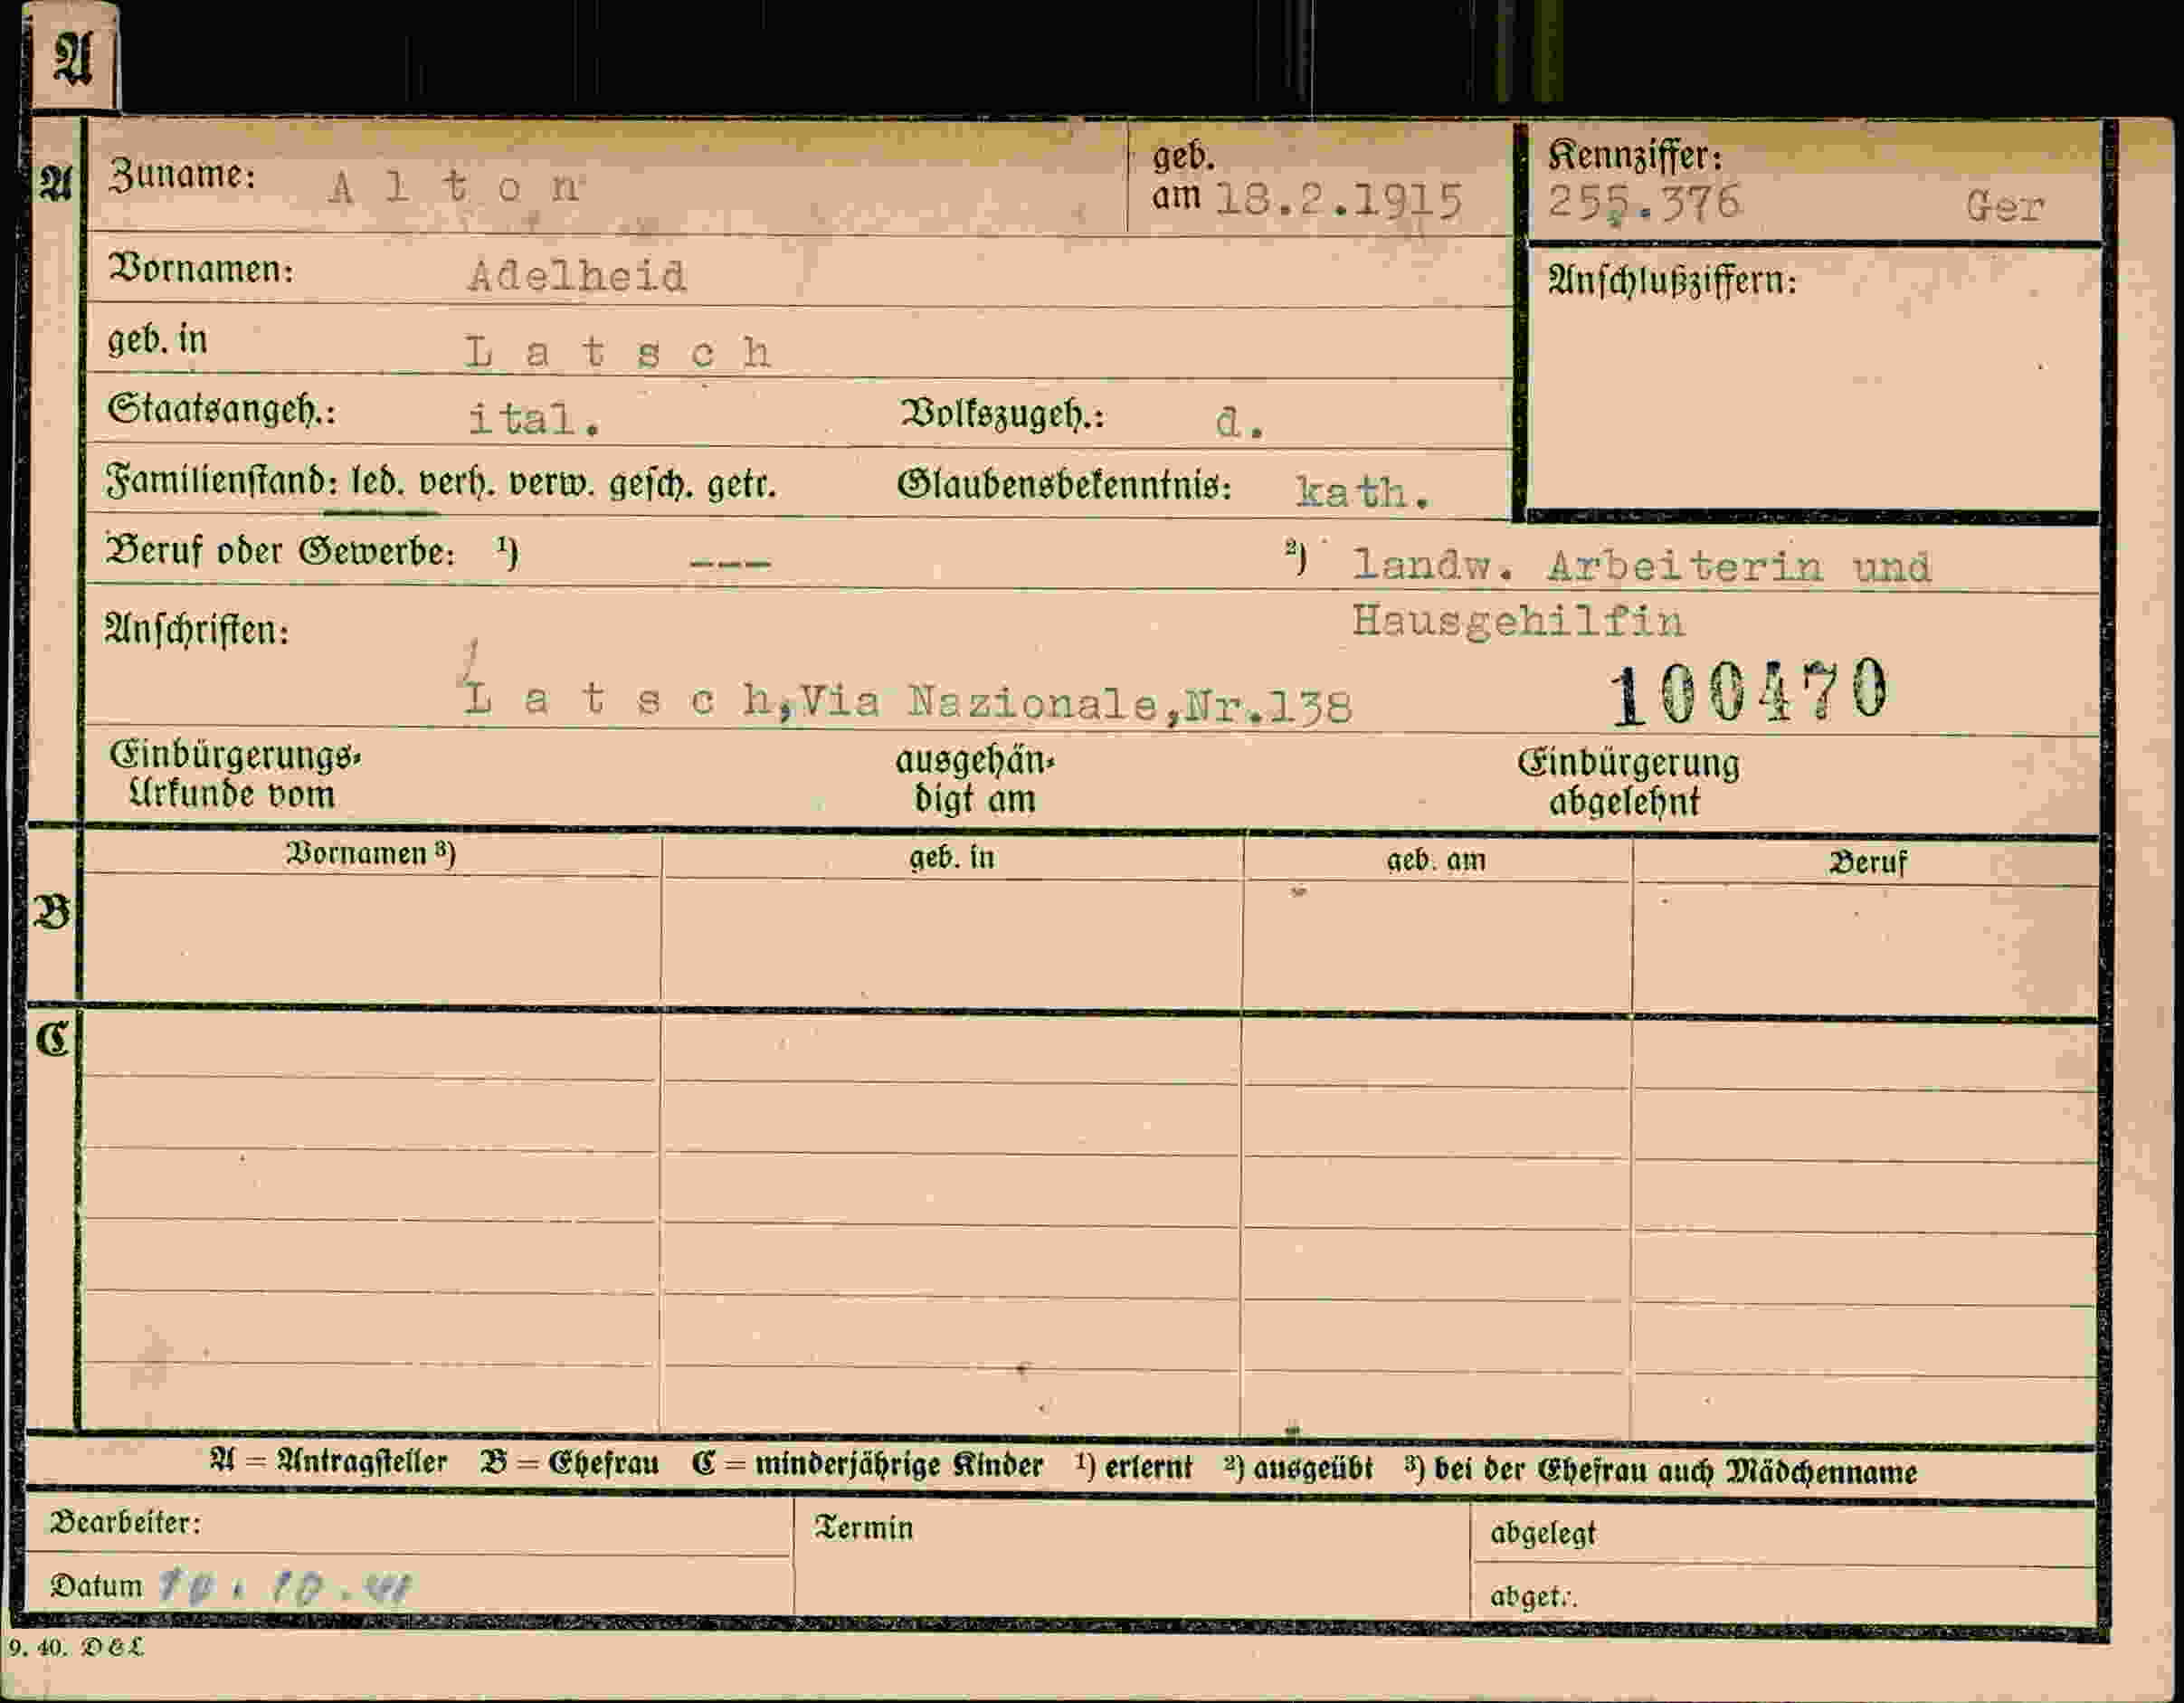 A
A Zuname: A l t o n geb. am 18.2.1915 Kennziffer: 255.376 Ger
Vornamen: Adelheid Anschlußziffern:
geb. in L a t s c h
Staatsangeh.: ital. Volkszugeh.: d.
Familienstand: led. verh. verw. gesch. getr. Glaubensbekenntnis: kath.
Beruf oder Gewerbe: ¹) --- ²) landw. Arbeiterin und
Anschriften: Hausgehilfin
L a t s c h,Via Nazionale,Nr.138 100470
Einbürgerungs- ausgehän- Einbürgerung
Urkunde vom digt am abgelehnt
Vornamen ³) geb. in geb. am Beruf
B
C
A = Antragsteller B = Ehefrau C = minderjährige Kinder ¹) erlernt ²) ausgeübt ³) bei der Ehefrau auch Mädchenname
Bearbeiter: Termin abgelegt
Datum 10.10.41 abget.:
9. 40. D & L